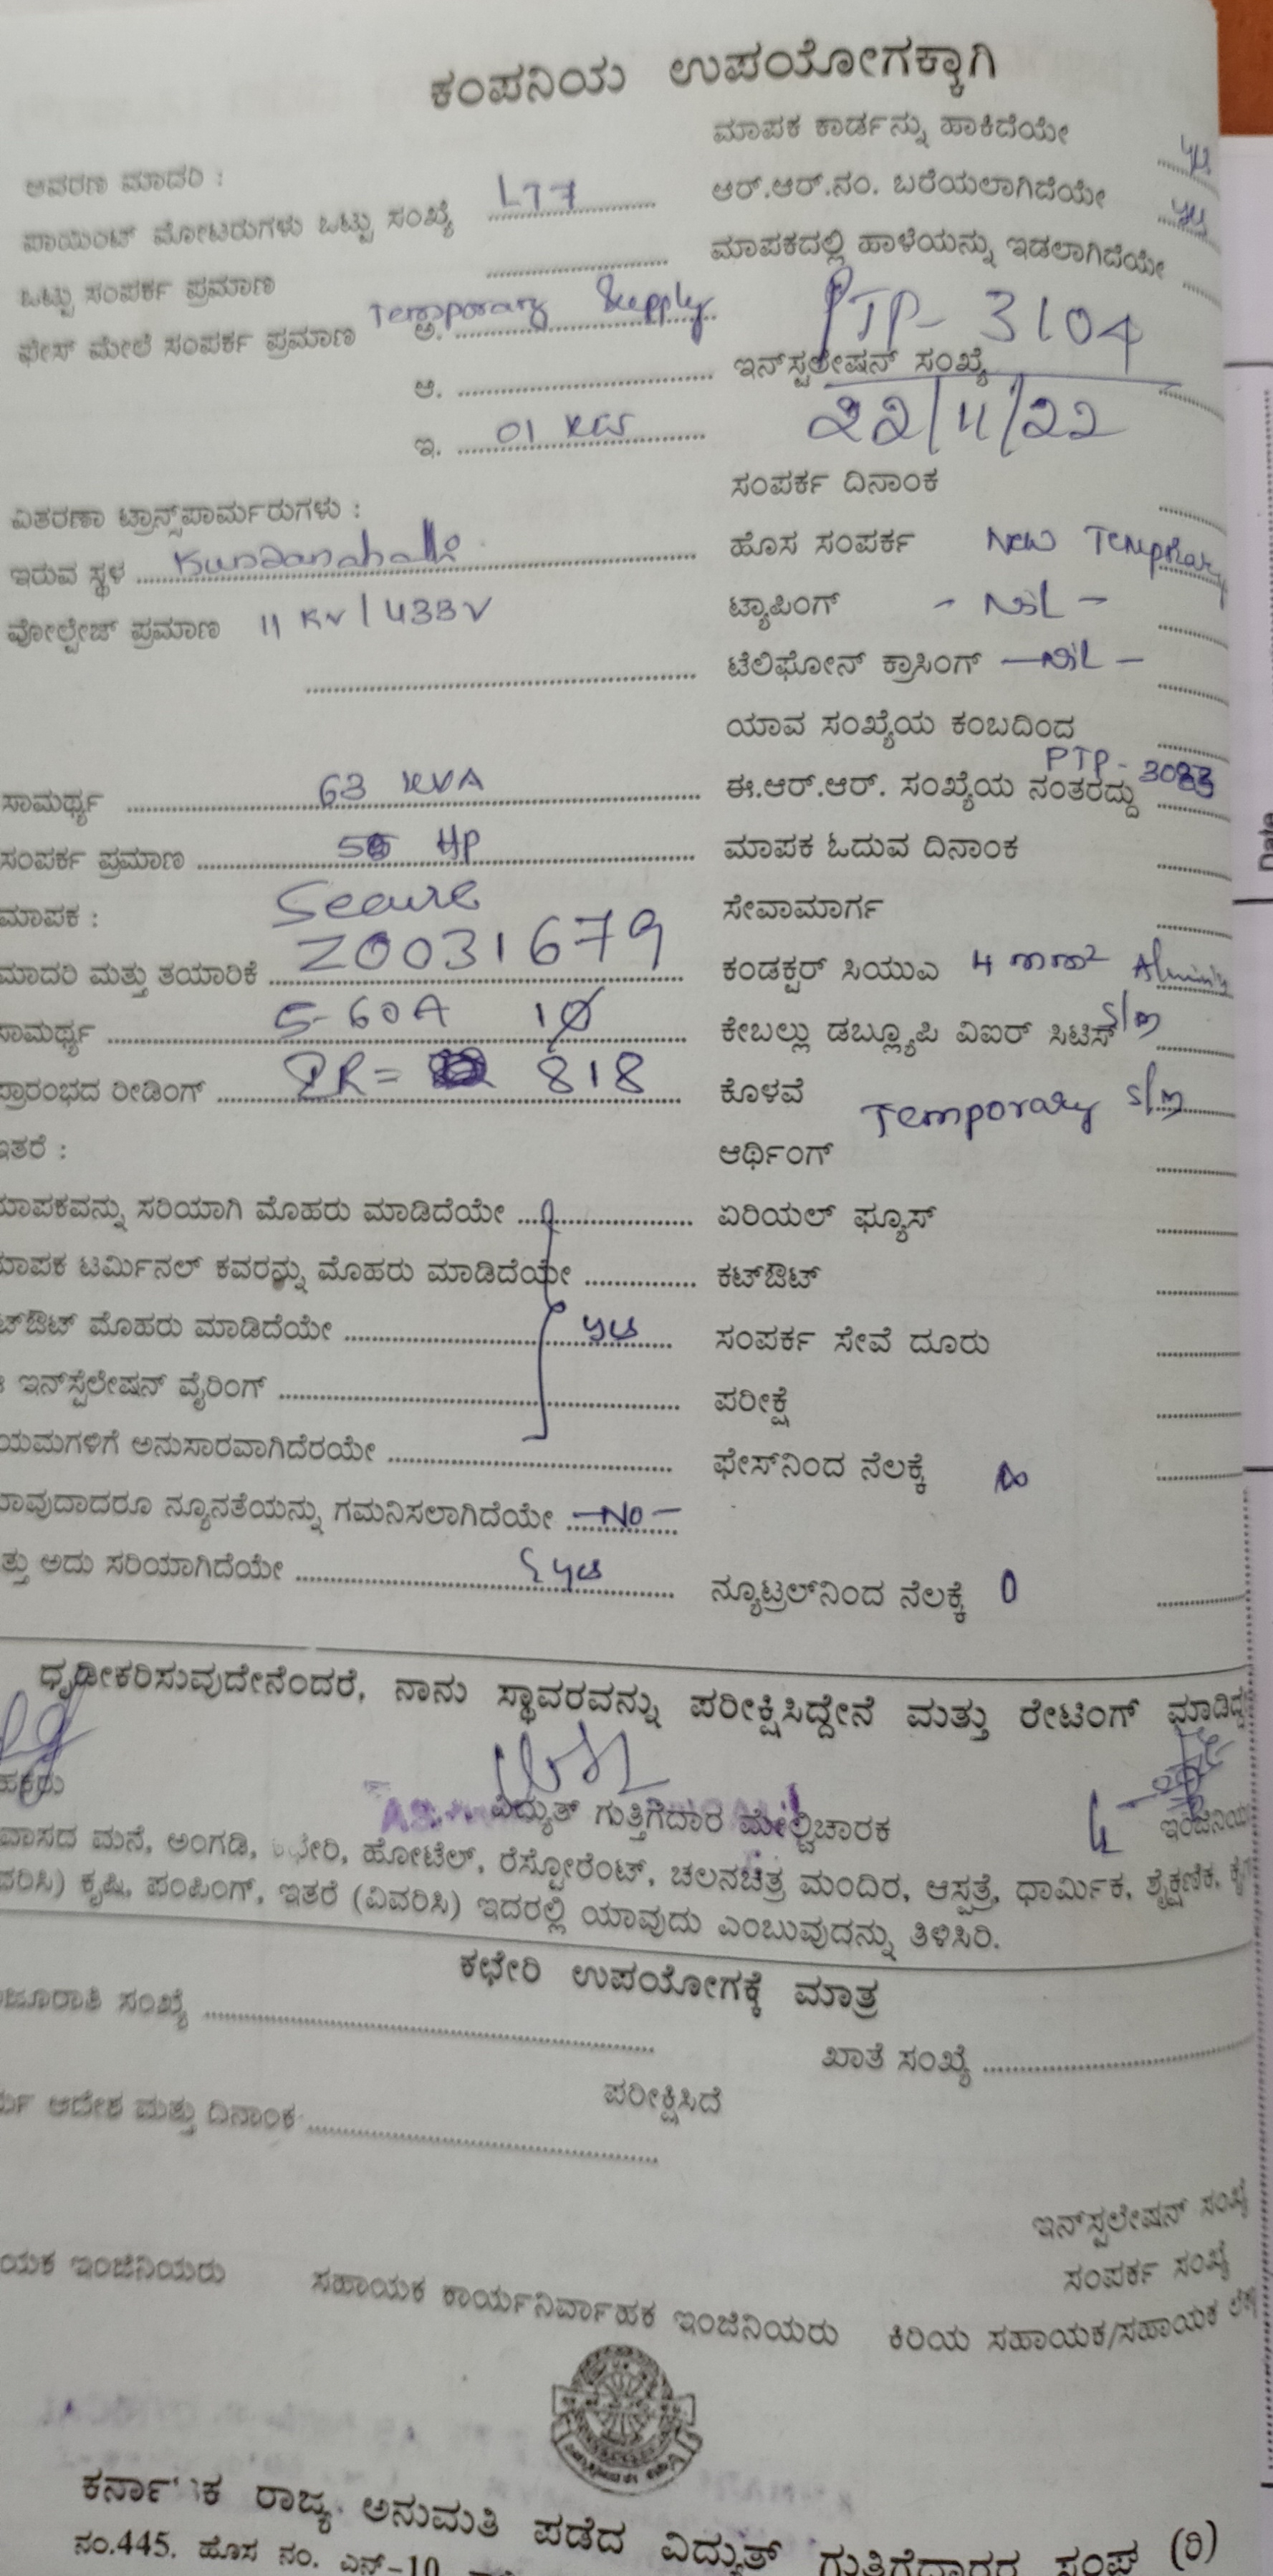 ಕಂಪನಿಯ ಉಪಯೋಗಕ್ಕಾಗಿ
ಮಾಪಕ ಕಾರ್ಡನ್ನು ಹಾಕಿದೆಯೇ yes
ಆವರಣ ಮಾದರಿ : LT7
ಆರ್.ಆರ್.ನಂ. ಬರೆಯಲಾಗಿದೆಯೇ yes
ಪಾಯಿಂಟ್ ಮೋಟರುಗಳು ಒಟ್ಟು ಸಂಖ್ಯೆ
ಮಾಪಕದಲ್ಲಿ ಹಾಳೆಯನ್ನು ಇಡಲಾಗಿದೆಯೇ
ಒಟ್ಟು ಸಂಪರ್ಕ ಪ್ರಮಾಣ
ಫೇಸ್ ಮೇಲೆ ಸಂಪರ್ಕ ಪ್ರಮಾಣ ಅ. Temporary Supply
PTP- 3104
ಇನ್‌ಸ್ಟಲೇಷನ್ ಸಂಖ್ಯೆ
ಆ.
22/11/22
ಇ. 01 KW
ಸಂಪರ್ಕ ದಿನಾಂಕ
ವಿತರಣಾ ಟ್ರಾನ್ಸ್‌ಪಾರ್ಮರುಗಳು :
ಹೊಸ ಸಂಪರ್ಕ New
ಇರುವ ಸ್ಥಳ Kundanahalli
ಟ್ಯಾಪಿಂಗ್ - NiL -
ವೋಲ್ಟೇಜ್ ಪ್ರಮಾಣ 11 KV / 433V
ಟೆಲಿಫೋನ್ ಕ್ರಾಸಿಂಗ್ - NiL -
ಯಾವ ಸಂಖ್ಯೆಯ ಕಂಬದಿಂದ
ಸಾಮರ್ಥ್ಯ 63 KVA
ಈ.ಆರ್.ಆರ್. ಸಂಖ್ಯೆಯ ನಂತರದ್ದು PTP-
ಸಂಪರ್ಕ ಪ್ರಮಾಣ HP
ಮಾಪಕ ಓದುವ ದಿನಾಂಕ
ಮಾಪಕ : Secure
ಸೇವಾಮಾರ್ಗ
ಮಾದರಿ ಮತ್ತು ತಯಾರಿಕೆ Z0031679
ಕಂಡಕ್ಟರ್ ಸಿಯುಎ 4 mm²
ಸಾಮರ್ಥ್ಯ 5-60A 1Ø
ಕೇಬಲ್ಲು ಡಬ್ಲ್ಯೂಪಿ ವಿಐರ್ ಸಿಟಿಸ್ S/m
ಪ್ರಾರಂಭದ ರೀಡಿಂಗ್ IR= 818
ಕೊಳವೆ Temporary S/m
ಇತರೆ :
ಆರ್ಥಿಂಗ್
ಮಾಪಕವನ್ನು ಸರಿಯಾಗಿ ಮೊಹರು ಮಾಡಿದೆಯೇ
ಏರಿಯಲ್ ಫ್ಯೂಸ್
ಮಾಪಕ ಟರ್ಮಿನಲ್ ಕವರನ್ನು ಮೊಹರು ಮಾಡಿದೆಯೇ
ಕಟ್‌ಔಟ್
ಟ್‌ಔಟ್ ಮೊಹರು ಮಾಡಿದೆಯೇ yes
ಸಂಪರ್ಕ ಸೇವೆ ದೂರು
ಇನ್‌ಸ್ಟೆಲೇಷನ್ ವೈರಿಂಗ್
ಪರೀಕ್ಷೆ
ಯಮಗಳಿಗೆ ಅನುಸಾರವಾಗಿದೆರಯೇ
ಫೇಸ್‌ನಿಂದ ನೆಲಕ್ಕೆ ∞
ಯಾವುದಾದರೂ ನ್ಯೂನತೆಯನ್ನು ಗಮನಿಸಲಾಗಿದೆಯೇ -No-
ತ್ತು ಅದು ಸರಿಯಾಗಿದೆಯೇ yes
ನ್ಯೂಟ್ರಲ್‌ನಿಂದ ನೆಲಕ್ಕೆ 0
ಧೃಡೀಕರಿಸುವುದೇನೆಂದರೆ, ನಾನು ಸ್ಥಾವರವನ್ನು ಪರೀಕ್ಷಿಸಿದ್ದೇನೆ ಮತ್ತು ರೇಟಿಂಗ್ ಮಾಡಿದ್ದ
ವಿದ್ಯುತ್ ಗುತ್ತಿಗೆದಾರ ಮೇಲ್ವಿಚಾರಕ
ಇಂಜಿನಿಯ
ವಾಸದ ಮನೆ, ಅಂಗಡಿ, ಛೇರಿ, ಹೋಟೆಲ್, ರೆಸ್ಟೋರೆಂಟ್, ಚಲನಚಿತ್ರ ಮಂದಿರ, ಆಸ್ಪತ್ರೆ, ಧಾರ್ಮಿಕ, ಶೈಕ್ಷಣಿಕ,
ವರಿಸಿ) ಕೃಷಿ, ಪಂಪಿಂಗ್, ಇತರೆ (ವಿವರಿಸಿ) ಇದರಲ್ಲಿ ಯಾವುದು ಎಂಬುವುದನ್ನು ತಿಳಿಸಿರಿ.
ಕಛೇರಿ ಉಪಯೋಗಕ್ಕೆ ಮಾತ್ರ
ಜೂರಾತಿ ಸಂಖ್ಯೆ
ಖಾತೆ ಸಂಖ್ಯೆ
ಪರೀಕ್ಷಿಸಿದೆ
ಆದೇಶ ಮತ್ತು ದಿನಾಂಕ
ಇನ್‌ಸ್ಟಲೇಷನ್ ಸಂಖ್ಯೆ
ಸಂಪರ್ಕ ಸಂಖ್ಯೆ
ಯಕ ಇಂಜಿನಿಯರು ಸಹಾಯಕ ಕಾರ್ಯನಿರ್ವಾಹಕ ಇಂಜಿನಿಯರು ಕಿರಿಯ ಸಹಾಯಕ/ಸಹಾಯಕ
ಕರ್ನಾಟಕ ರಾಜ್ಯ ಅನುಮತಿ ಪಡೆದ ವಿದ್ಯುತ್ ಗುತ್ತಿಗೆದಾರರ ಸಂಘ (ರಿ)
ನಂ.445. ಹೊಸ ನಂ. ಎನ್-10